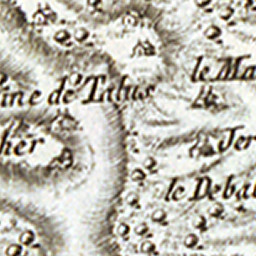 le Ma
ine de Talus
Jer
ker
le Deba